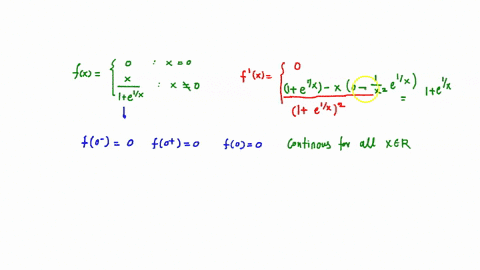 f(x) = { 0 : x = 0
x / 1+e^{1/x} : x ≠ 0
f'(x) = { 0
(1+e^{1/x}) - x (0 - 1/x² e^{1/x}) / (1+ e^{1/x})² = 1+e^{1/x}
f(0⁻) = 0 f(0⁺) = 0 f(0) = 0 Continous for all x∈R